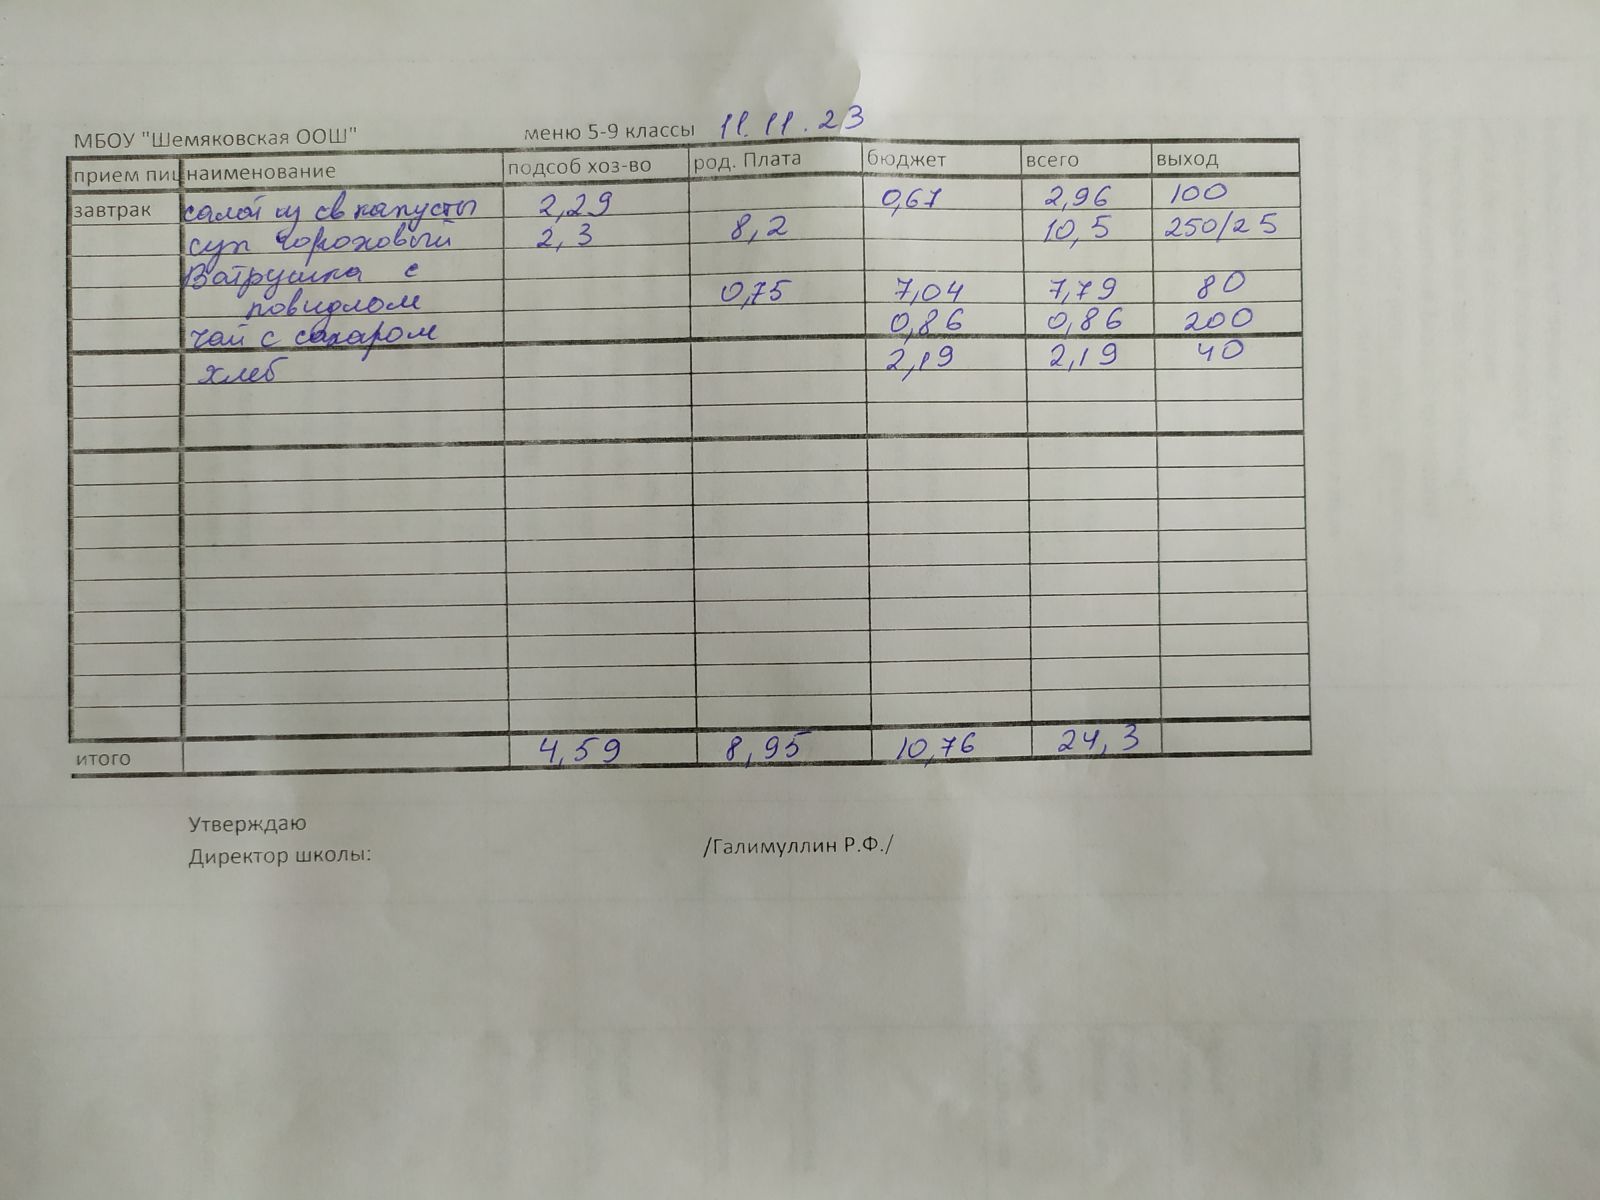 МБОУ "Шемяковская ООШ" меню 5-9 классы 11.11.23
прием пиц наименование подсоб хоз-во род. Плата бюджет всего выход
завтрак салат из св капусты 2,29 0,67 2,96 100
суп гороховый 2,3 8,2 10,5 250/25
Ватрушка с
повидлом 0,75 7,04 7,79 80
чай с сахаром 0,86 0,86 200
хлеб 2,19 2,19 40
итого 4,59 8,95 10,76 24,3
Утверждаю
Директор школы: /Галимуллин Р.Ф./